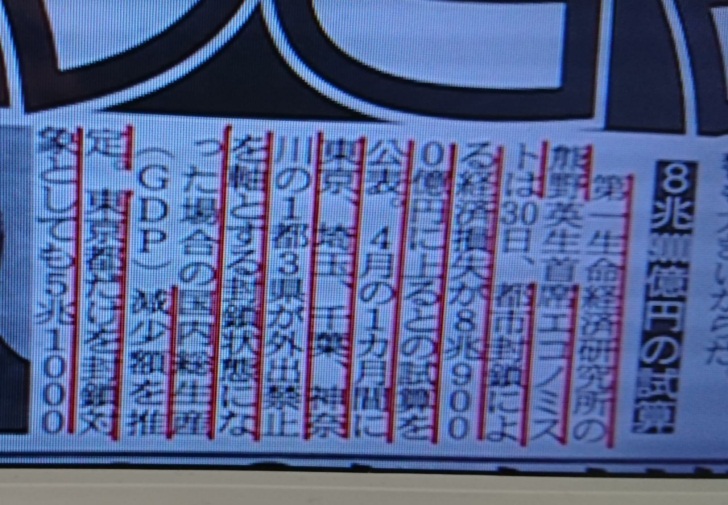 8兆9000億円の試算
第一生命経済研究所の
熊野英生首席エコノミス
トは30日、都市封鎖によ
る経済損失が8兆900
0億円に上るとの試算を
公表。4月の1カ月間に
東京、埼玉、千葉、神奈
川の1都3県が外出禁止
を軸とする封鎖状態にな
った場合の国内総生産
（GDP）減少額を推
定。東京都だけを封鎖対
象としても5兆1000